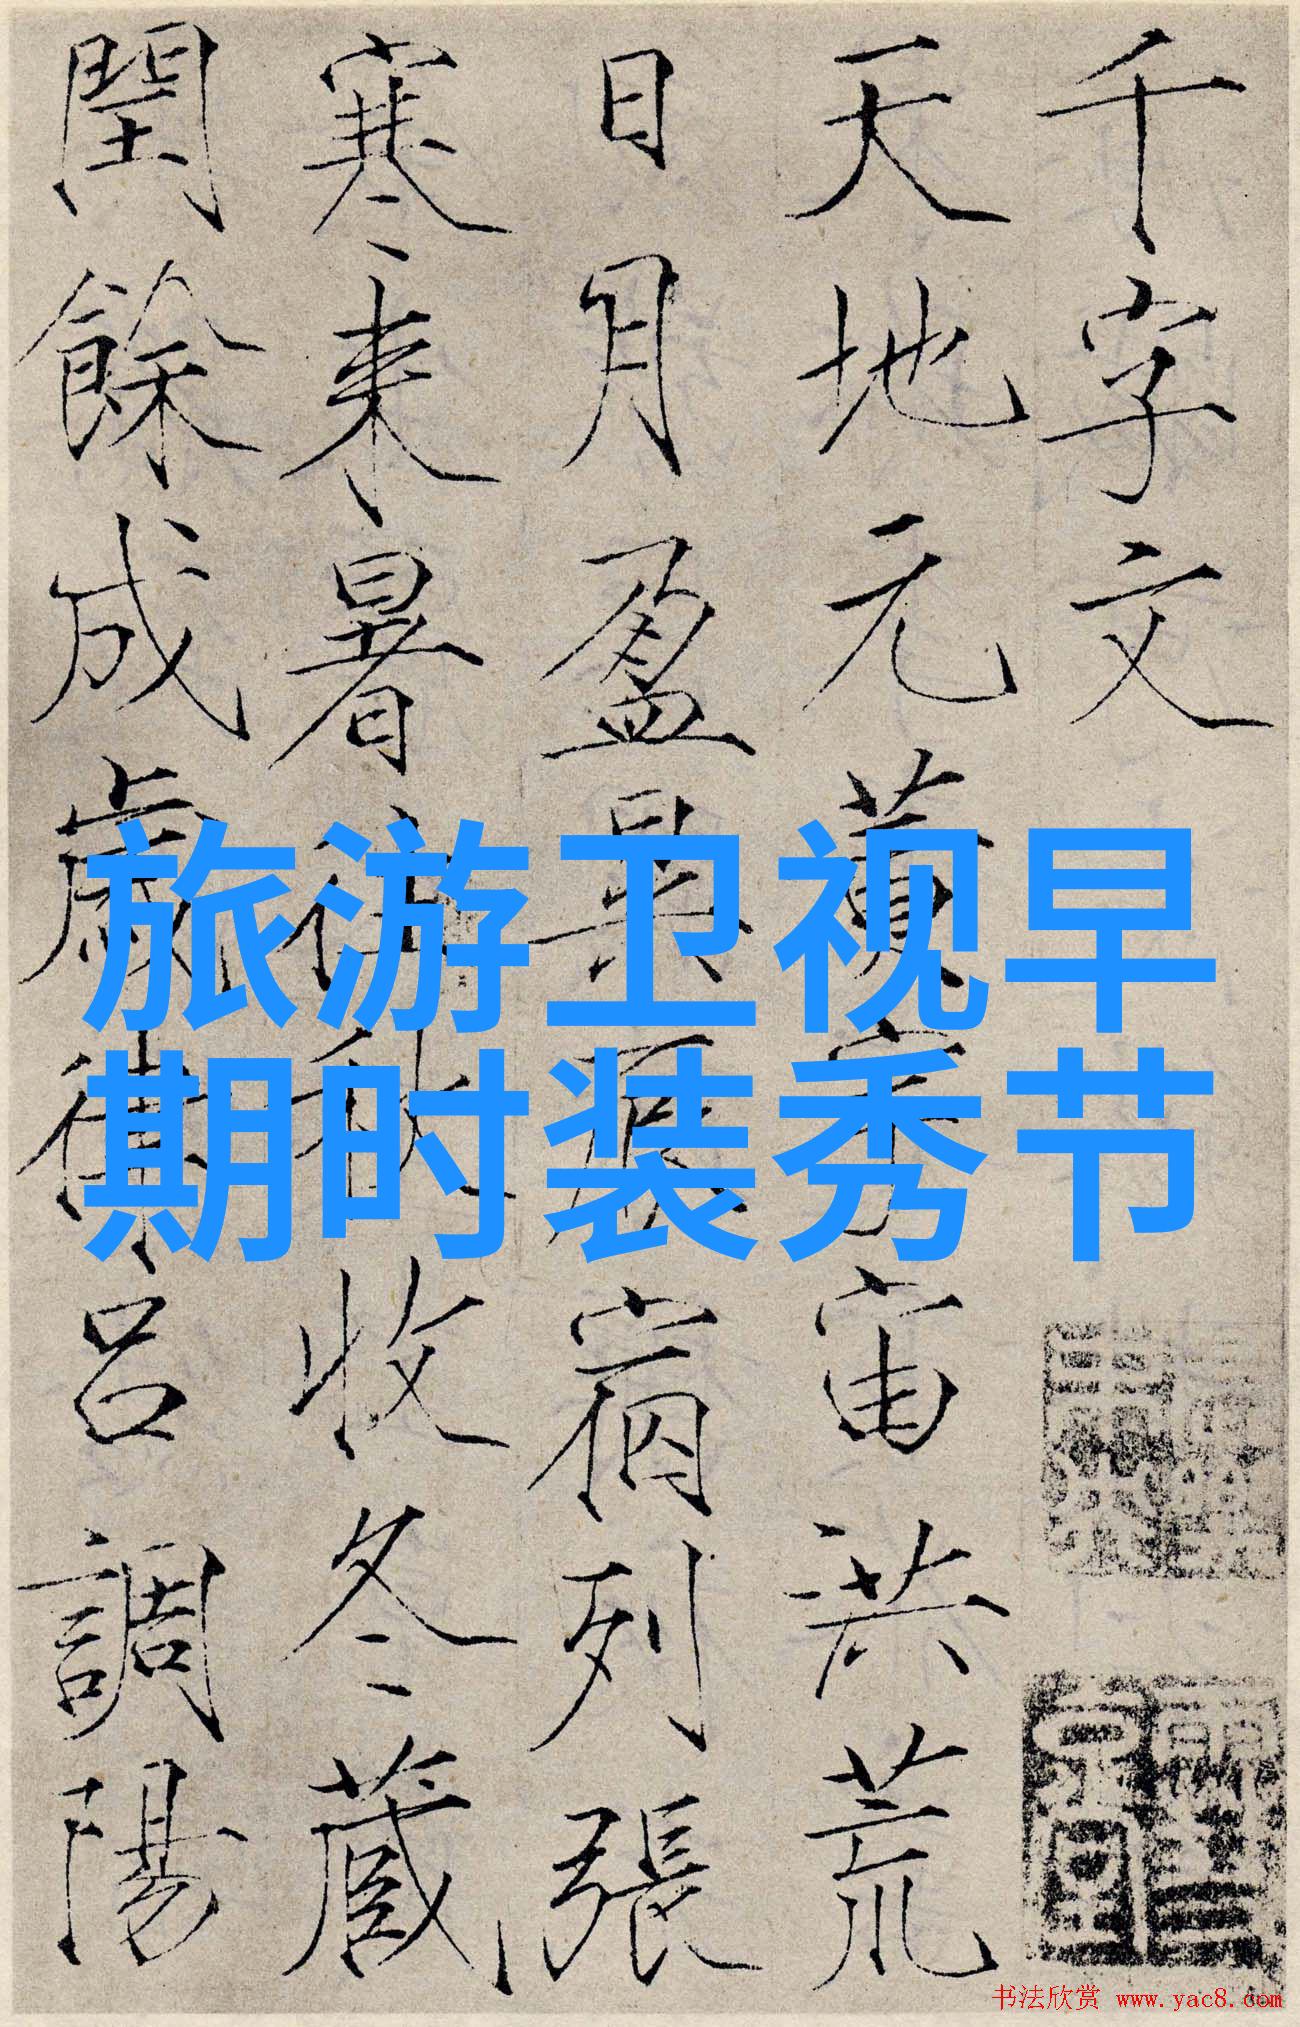 千字文
天地元黄宇宙洪荒
日月盈昃辰宿列張
寒来暑往秋收冬蔵
閏餘成歲律吕調陽
旅游卫视早
期时装秀节
书法欣赏 www.yac8.com